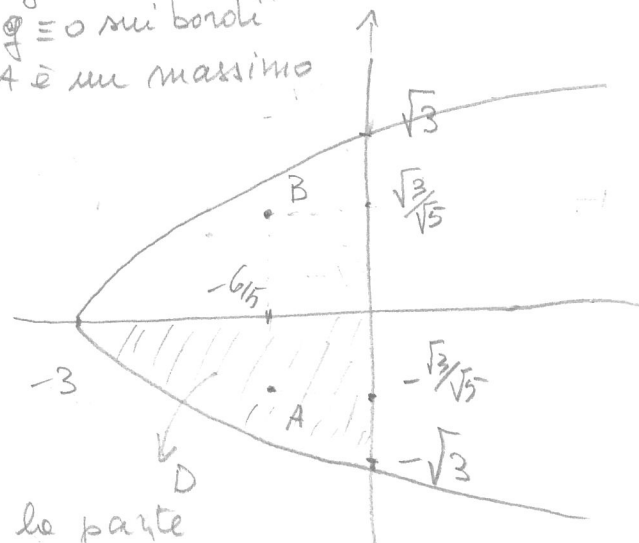 g ≡ 0 sui bordi
A è un massimo
√3
B
√3/√5
-6/5
-3
-√3/√5
A
-√3
D
la parte